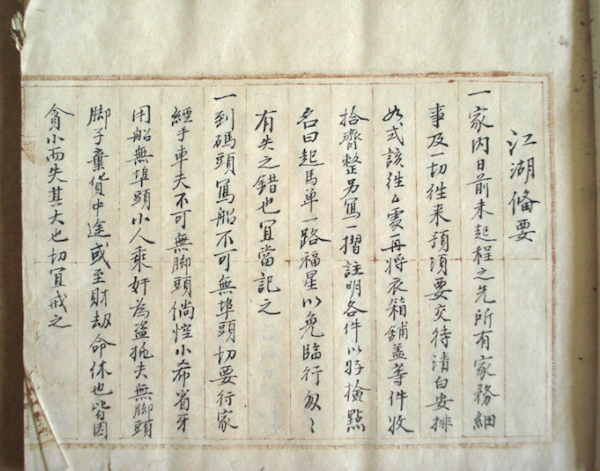 江湖偹要
一家內日前未起程之先所有家務細
事及一切往来預須要交待清白安排
如式該往厶處再將衣箱舖盖等件收
拾齊整另寫一摺註明各件以好撿點
名曰起馬单一路福星以免臨行匆〻
有失之錯也宜當記之
一到碼頭寫船不可無埠頭切要行家
經手車夫不可無脚頭倘慳小希省牙
用船無埠頭小人乘奸為盗挑夫無脚頭
脚子棄貨中途或至財刼命休也皆因
貪小而失其大也切宜戒之